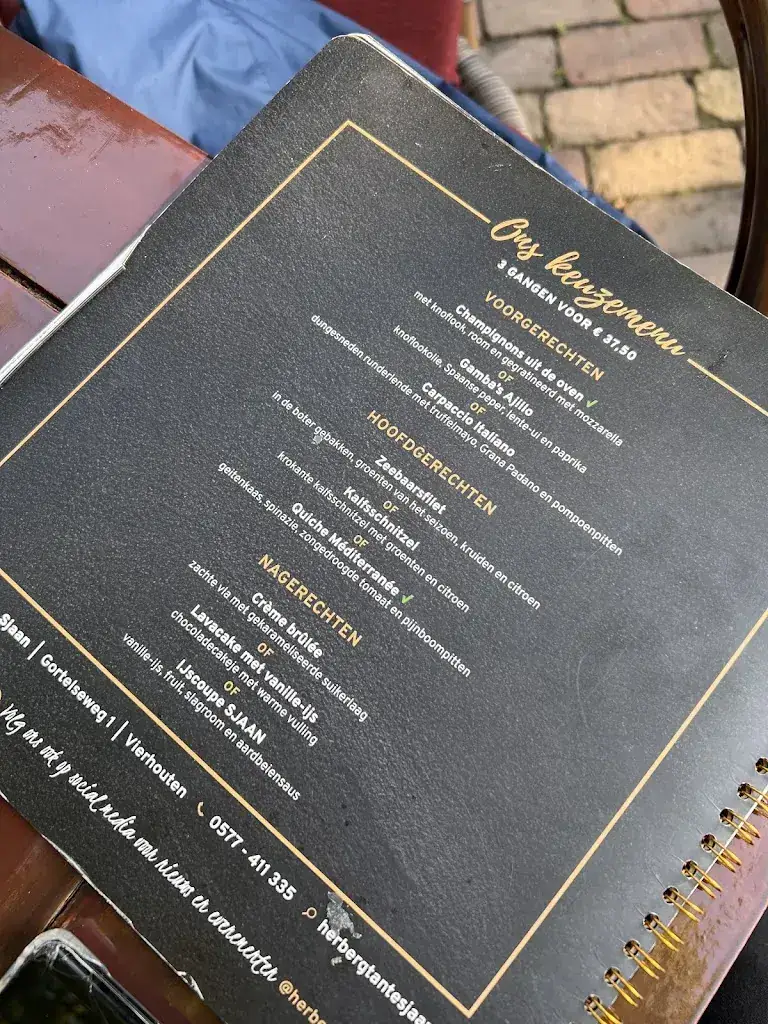 Ons keuzemenu
3 GANGEN VOOR € 37,50
VOORGERECHTEN
Champignons uit de oven
met knoflook, room en gegratineerd met mozzarella
OF
Gamba's Ajilio
knoflookolie, Spaanse peper, lente-ui en paprika
OF
Carpaccio Italiano
dungesneden runderlende met truffelmayo, Grana Padano en pompoenpitten
HOOFDGERECHTEN
Zeebaarsfilet
in de boter gebakken, groenten van het seizoen, kruiden en citroen
OF
Kalfsschnitzel
krokante kalfsschnitzel met groenten en citroen
OF
Quiche Méditerranée
geitenkaas, spinazie, zongedroogde tomaat en pijnboompitten
NAGERECHTEN
Crème brûlée
zachte vla met gekarameliseerde suikerlaag
OF
Lavacake met vanille-ijs
chocoladecakeje met warme vulling
OF
IJscoupe SJAAN
vanille-ijs, fruit, slagroom en aardbeiensaus
Sjaan | Gortelseweg 1 | Vierhouten 0577 - 411 335 herbergtantesjaan
Volg ons ook op social media voor nieuws en evenementen @herb